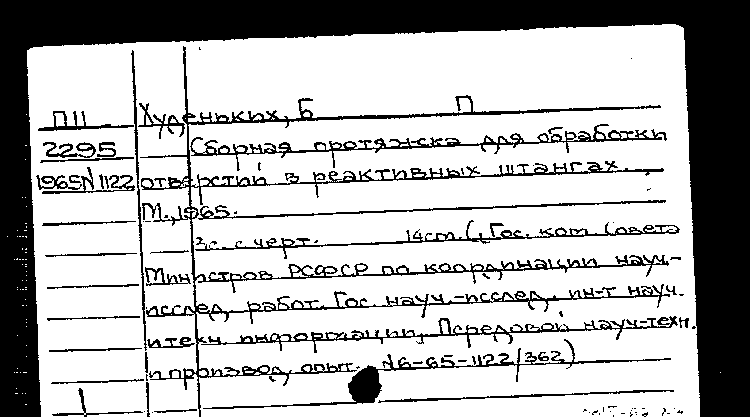 П11 Худеньких, Б П
2295 Сборная протяжска для обработки
1965 N1122 отверстий в реактивных штангах.
М., 1965.
3с. с черт. 14см. (Гос. ком. Совета
Министров РСФСР по координации науч.-
исслед. работ. Гос. науч.-исслед. ин-т науч.
и техн. информации. Передовой науч-техн.
и производ. опыт. N6-65-1122/362)